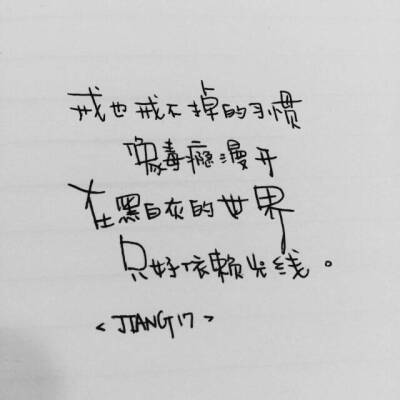 戒也戒不掉的习惯
像毒瘾漫开
在黑白灰的世界
只好依赖光线。
<JIANG17>